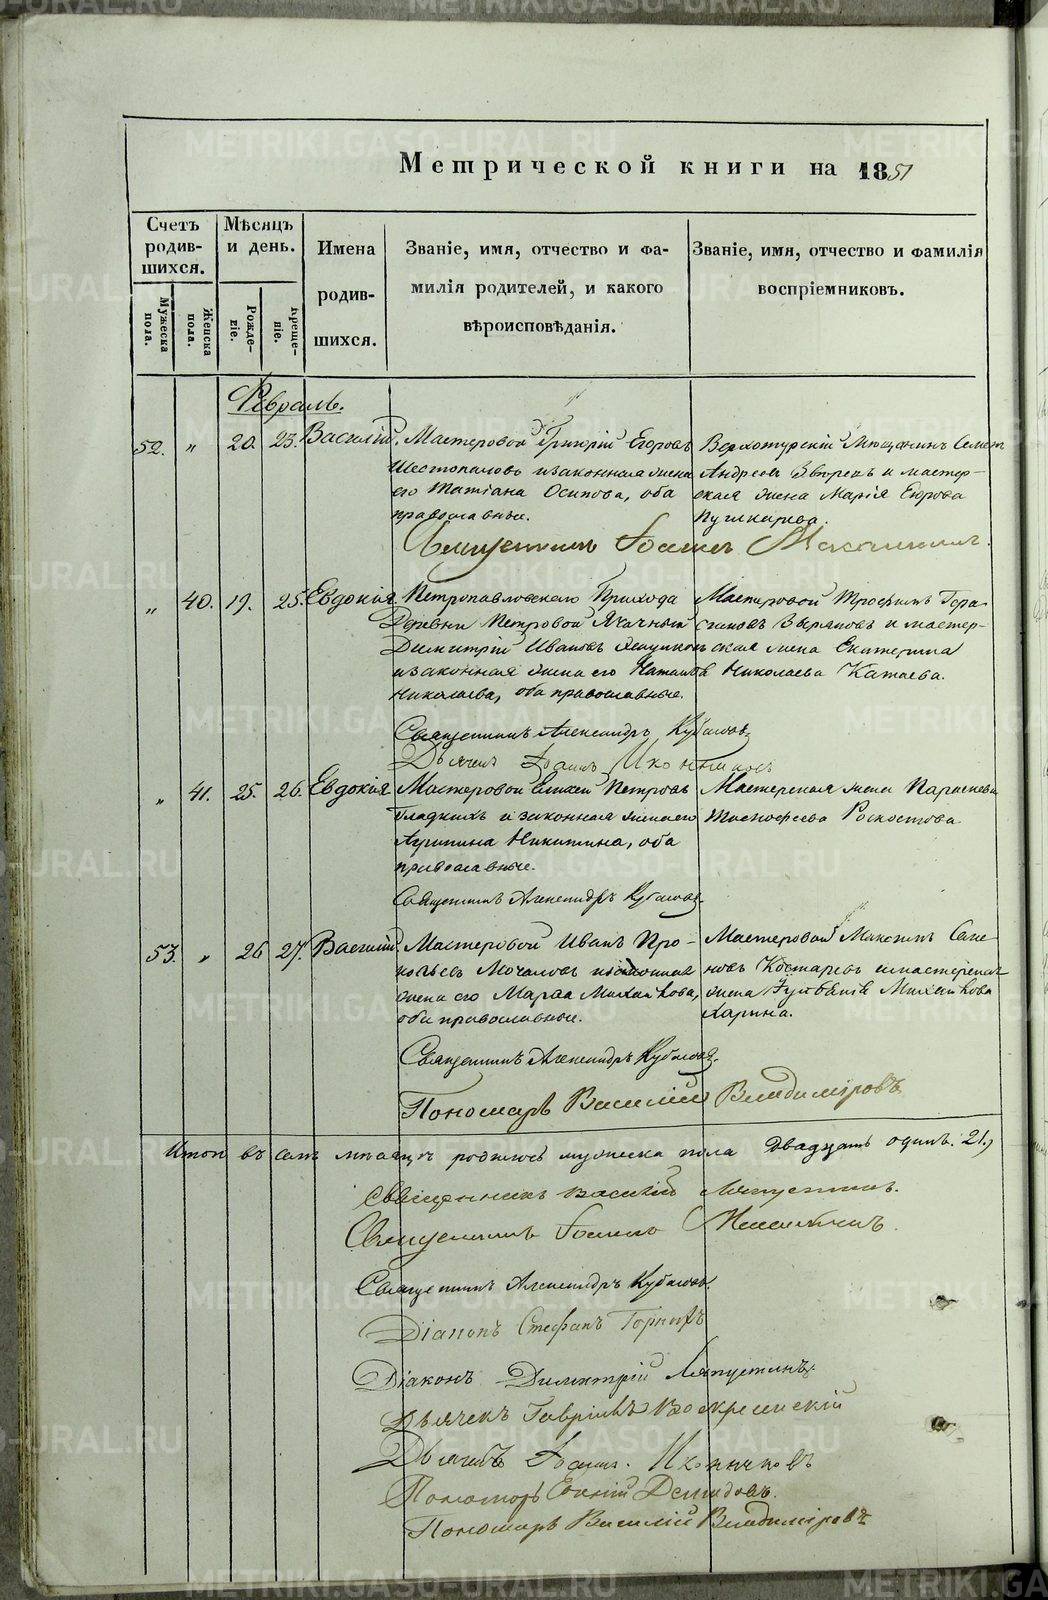 Метрической книги на 1851
Счетъ родив-шихся.
Мужеска пола.
Женска пола.
Мѣсяцъ и день.
Рожде-ніе.
Креще-ніе.
Имена родив-шихся.
Званіе, имя, отчество и фа-
милія родителей, и какого
вѣроисповѣданія.
Званіе, имя, отчество и фамилія
воспріемниковъ.
Февраль.
52. " 20. 23. Василій.
Мастеровой Григорій Егоровъ
Шестопаловъ и законная жена
его Татіана Осипова, оба
православные.
Верхотурскій Мѣщанинъ Семенъ
Андреевъ и мастер-
ская жена Марія Егорова
Пушкарева.
Священникъ Іоаннъ
" 40. 19. 25. Евдокія.
Петропавловскаго Прихода
Деревни Петровой
Димитрій Ивановъ
и законная жена его Наталья
Николаева, оба православные.
Мастеровой Трофимъ Гера-
симовъ Зыряновъ и мастер-
ская жена Екатерина
Николаева Катаева.
Священникъ Александръ
Дьячекъ Іоаннъ Иконниковъ
" 41. 25. 26. Евдокія
Мастеровой Петровъ
Гладкихъ и законная жена его
Агрипина Никитина, оба
православные.
Мастерская жена Параскева
Тимофеева
Священникъ Александръ
53. " 26 27. Василій.
Мастеровой Иванъ Про-
копьевъ Мочаловъ и законная
жена его Марѳа Михайлова,
оба православные.
Мастеровой Максимъ Семе-
новъ Костаревъ и мастерская
жена Михайлова
Харина.
Священникъ Александръ
Пономарь Василій Владиміровъ
Итого въ семъ мѣсяцѣ родилось мужеска пола двадцать одинъ. 21.,
Священникъ Василій Ляпустинъ.
Священникъ Іоаннъ
Священникъ Александръ
Діаконъ Стефанъ Горныхъ
Діаконъ Димитрій Ляпустинъ.
Дьячекъ Гавріилъ Воскресенскій
Дьячекъ Іоаннъ Иконниковъ
Пономарь Демидовъ.
Пономарь Василій Владиміровъ
METRIKI.GASO-URAL.RU